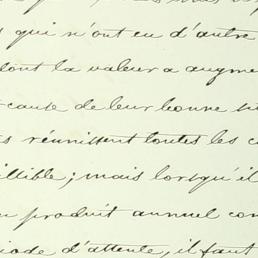 qui n'ont eu d'autre
dont la valeur a augme
cause de leur bonne si
réunissent toutes les c
; mais lorsqu'il
produit annuel con
d'attente, il faut